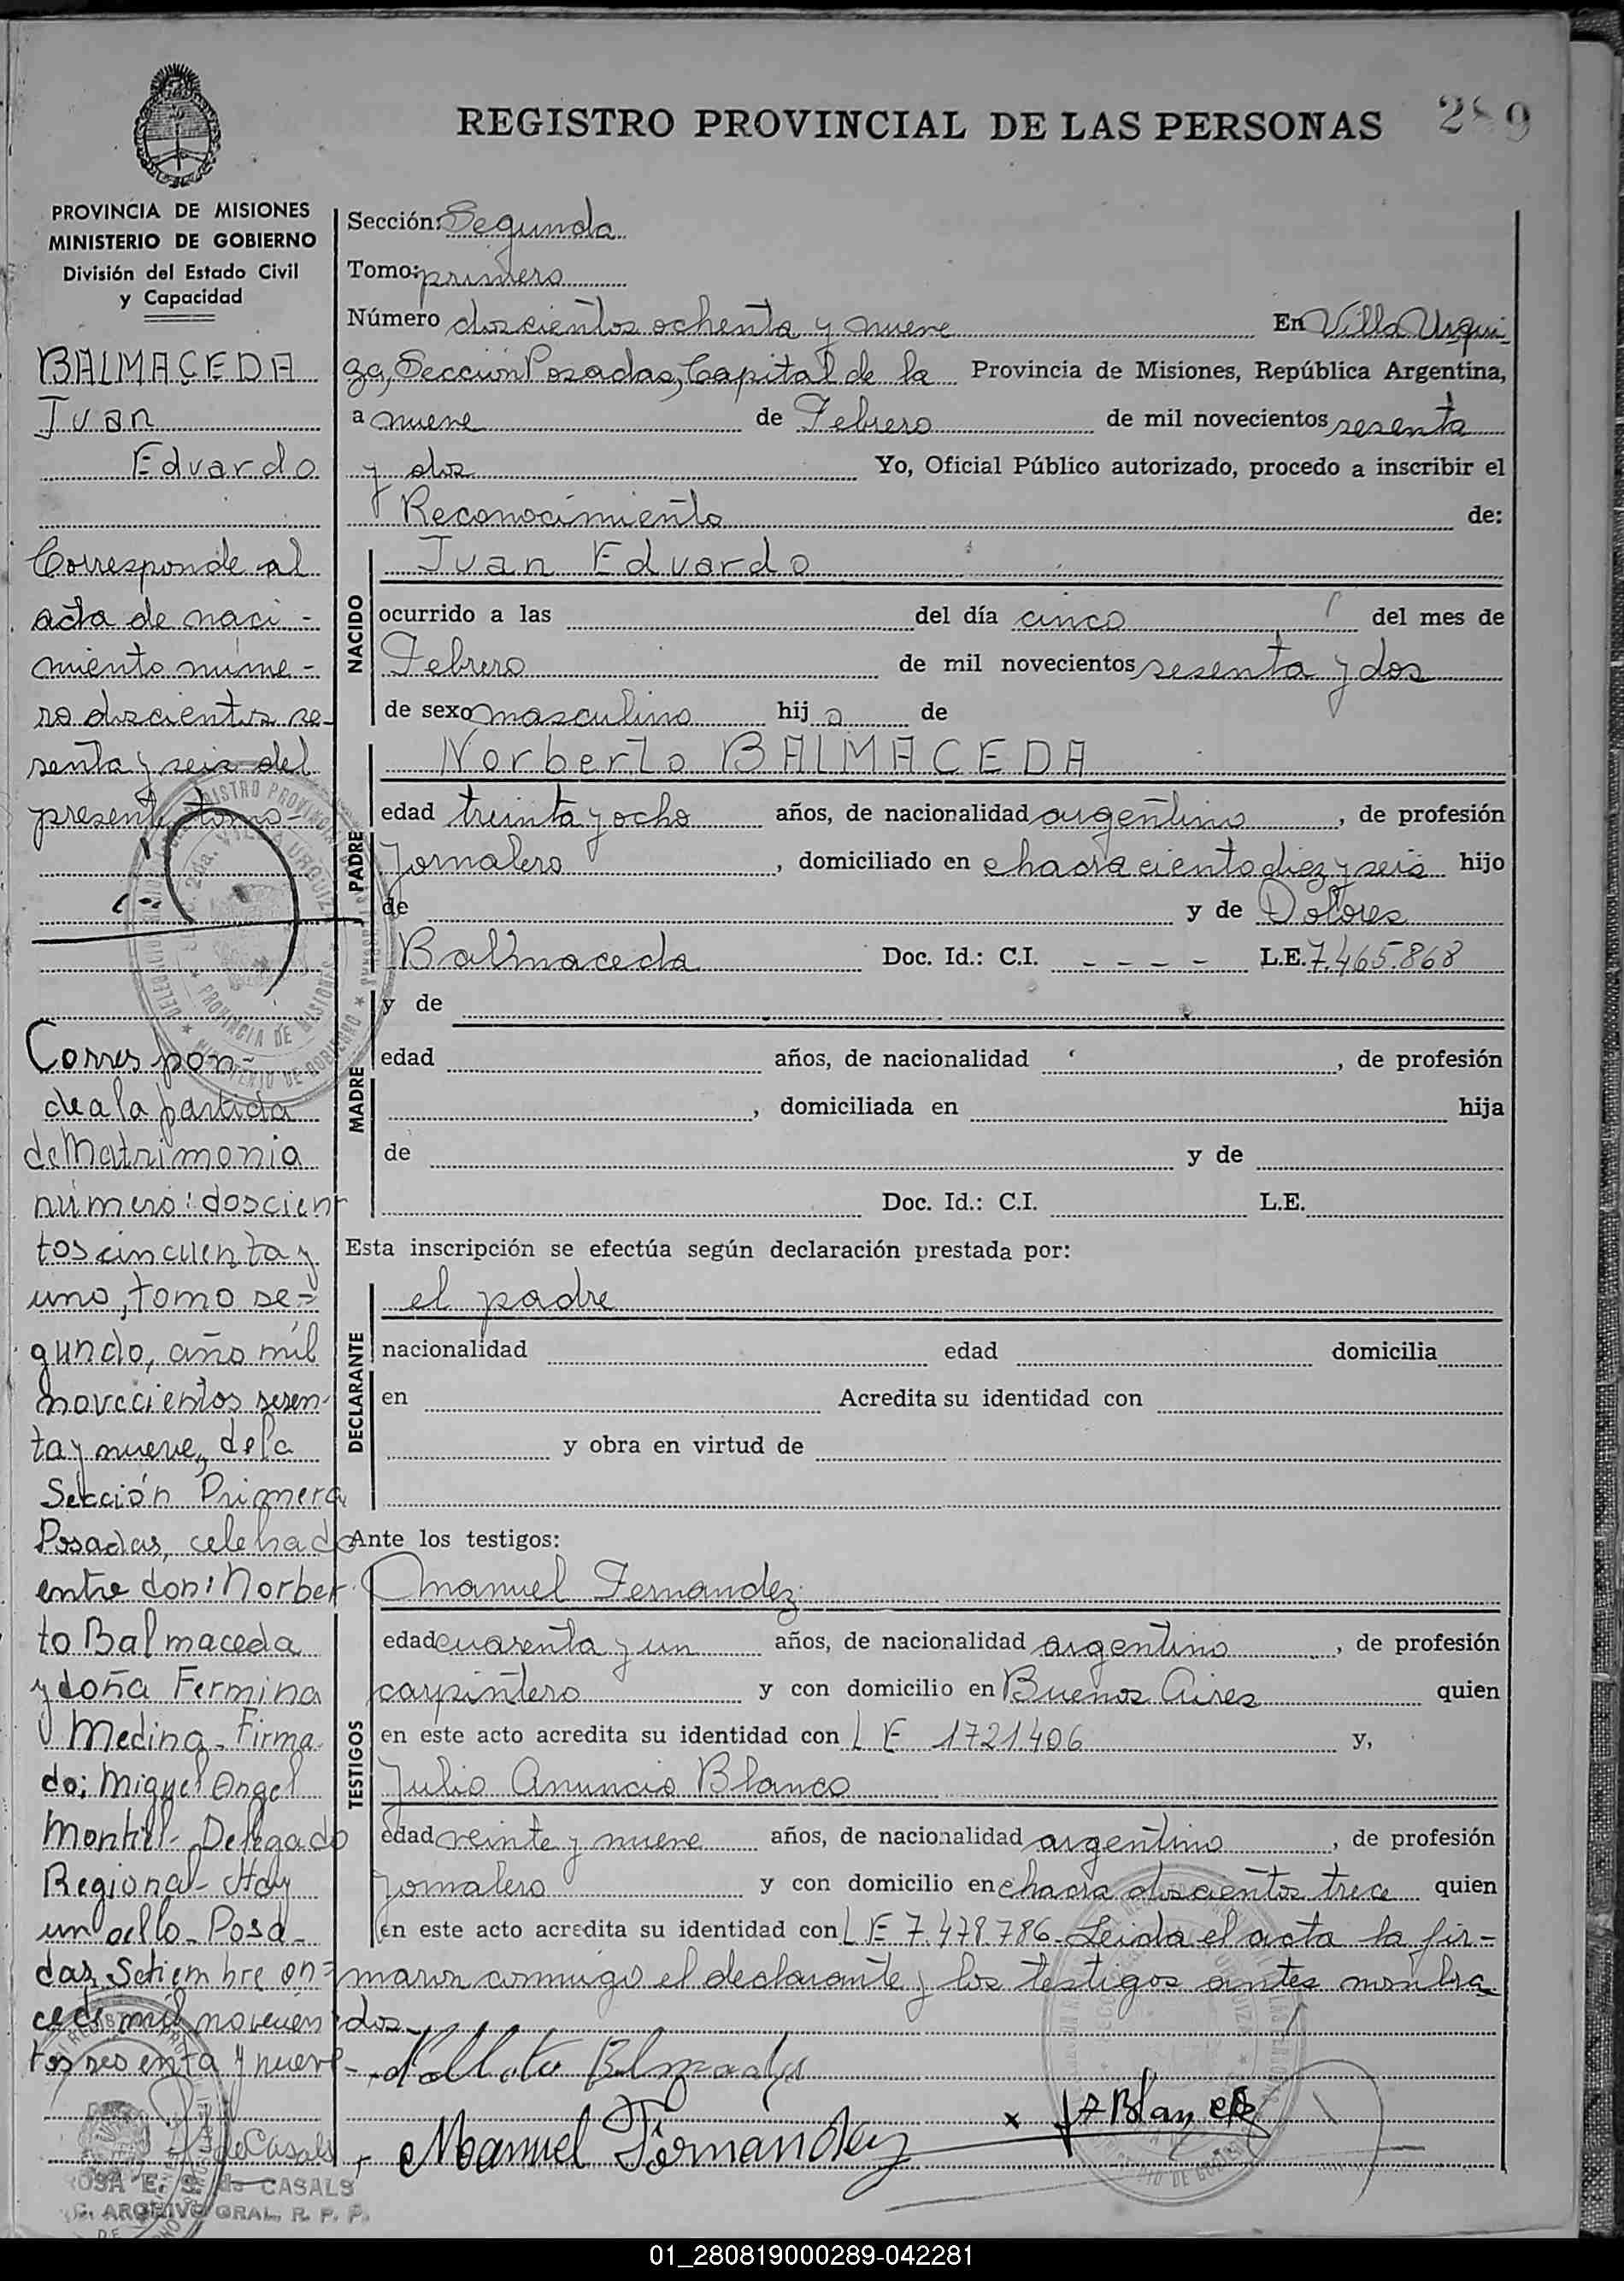 REGISTRO PROVINCIAL DE LAS PERSONAS 289
PROVINCIA DE MISIONES
MINISTERIO DE GOBIERNO
División del Estado Civil
y Capacidad
BALMACEDA
Juan
Eduardo
Corresponde al
acta de naci-
miento núme-
ro doscientos se-
senta y seis del
presente tomo-
Correspon-
de a la partida
de Matrimonio
número: doscien
tos cincuenta y
uno, tomo se-
gundo, año mil
novecientos sesen-
ta y nueve, de la
Sección Primera
Posadas, celebrado
entre don: Norber
to Balmaceda
y doña Fermina
Medina. Firma
do: Miguel Angel
Montiel- Delegado
Regional- Hay
un sello- Posa-
das, Setiembre on-
ce de mil novecien
tos sesenta y nueve-
de Casals
ROSA E. S. de CASALS
ARCHIVO GRAL. R. P. P.
Sección: Segunda
Tomo: primero
Número doscientos ochenta y nueve En Villa Urqui
za, Sección Posadas, Capital de la Provincia de Misiones, República Argentina,
a nueve de Febrero de mil novecientos sesenta
y dos Yo, Oficial Público autorizado, procedo a inscribir el
Reconocimiento de:
NACIDO
Juan Eduardo
ocurrido a las del día cinco del mes de
Febrero de mil novecientos sesenta y dos
de sexo masculino hijo de
PADRE
Norberto BALMACEDA
edad treinta y ocho años, de nacionalidad argentino, de profesión
Jornalero, domiciliado en chacra ciento diez y seis hijo
de y de Dolores
Balmaceda Doc. Id.: C.I. - - - - L.E. 7.465.868
MADRE
y de
edad años, de nacionalidad , de profesión
, domiciliada en hija
de y de
Doc. Id.: C.I. L.E.
Esta inscripción se efectúa según declaración prestada por:
DECLARANTE
el padre
nacionalidad edad domicilia
en Acredita su identidad con
y obra en virtud de
Ante los testigos:
TESTIGOS
Manuel Fernandez
edad cuarenta y un años, de nacionalidad argentino, de profesión
carpintero y con domicilio en Buenos Aires quien
en este acto acredita su identidad con L E 1721406 y,
Julio Anuncio Blanco
edad veinte y nueve años, de nacionalidad argentino, de profesión
Jornalero y con domicilio en chacra doscientos trece quien
en este acto acredita su identidad con L E 7.478.786- Leida el acta la fir-
maron conmigo el declarante y los testigos antes nombra
dos-
Manuel Fernandez
01_280819000289-042281